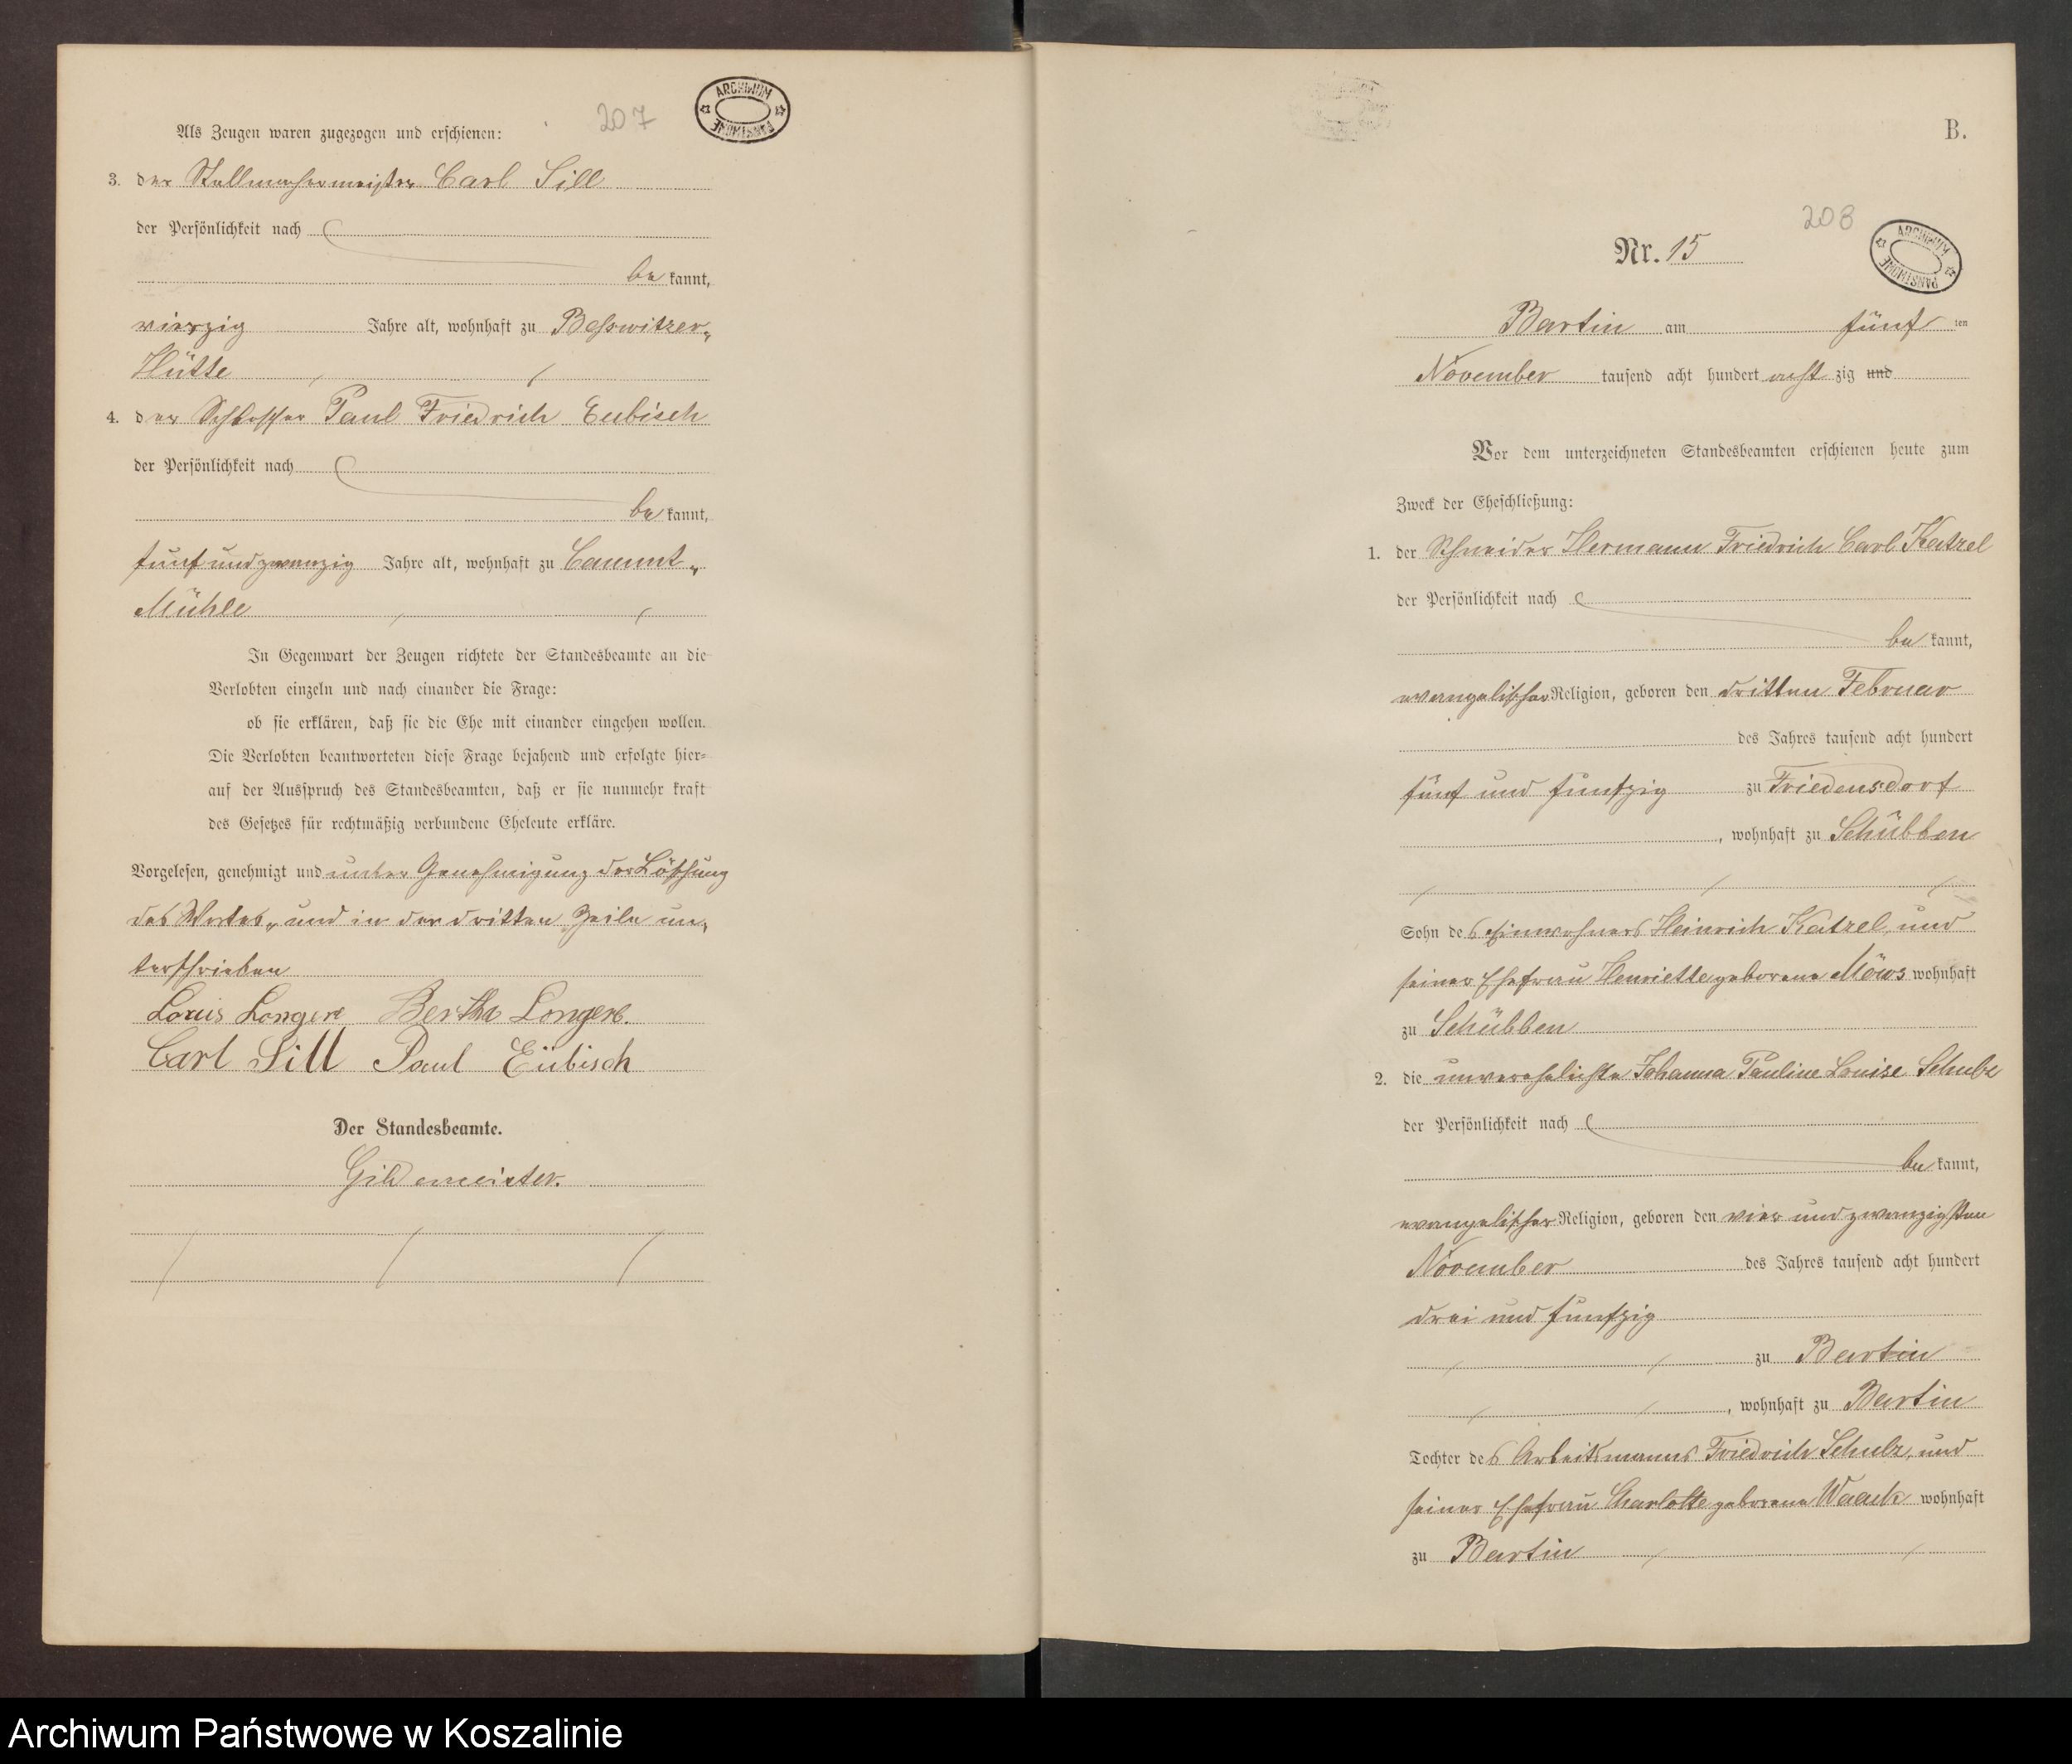 207
ARCHIWUM PAŃSTWOWE
Als Zeugen waren zugezogen und erschienen:
3. der Stellmachermeister Carl Sill
der Persönlichkeit nach
be kannt,
vierzig Jahre alt, wohnhaft zu Besswitzer-
Hütte
4. der Schlosser Paul Friedrich Eubisch
der Persönlichkeit nach
be kannt,
fünfundzwanzig Jahre alt, wohnhaft zu Cammt-
Mühle
In Gegenwart der Zeugen richtete der Standesbeamte an die
Verlobten einzeln und nach einander die Frage:
ob sie erklären, daß sie die Ehe mit einander eingehen wollen.
Die Verlobten beantworteten diese Frage bejahend und erfolgte hier-
auf der Ausspruch des Standesbeamten, daß er sie nunmehr kraft
des Gesetzes für rechtmäßig verbundene Eheleute erkläre.
Vorgelesen, genehmigt und unter Genehmigung der Löschung
des Wortes „und in der dritten Zeile un-
terschrieben
Louis Longere Bertha Longere.
Carl Sill Paul Eübisch
Der Standesbeamte.
Gildemeister.
B.
208
ARCHIWUM PAŃSTWOWE
Nr. 15
Bartin am fünf ten
November tausend acht hundert acht zig und
Vor dem unterzeichneten Standesbeamten erschienen heute zum
Zweck der Eheschließung:
1. der Schneider Hermann Friedrich Carl Katzel
der Persönlichkeit nach
be kannt,
evangelischer Religion, geboren den dritten Februar
des Jahres tausend acht hundert
fünf und funfzig zu Friedensdorf
, wohnhaft zu Schübben
Sohn des Einwohners Heinrich Katzel und
seiner Ehefrau Henriette geborene Möws wohnhaft
zu Schübben
2. die unverehelichte Johanna Pauline Louise Schulz
der Persönlichkeit nach
be kannt,
evangelischer Religion, geboren den vier und zwanzigsten
November des Jahres tausend acht hundert
drei und funfzig
zu Bartin
, wohnhaft zu Bartin
Tochter des Arbeitsmanns Friedrich Schulz, und
seiner Ehefrau Charlotte geborene Waack wohnhaft
zu Bartin
Archiwum Państwowe w Koszalinie